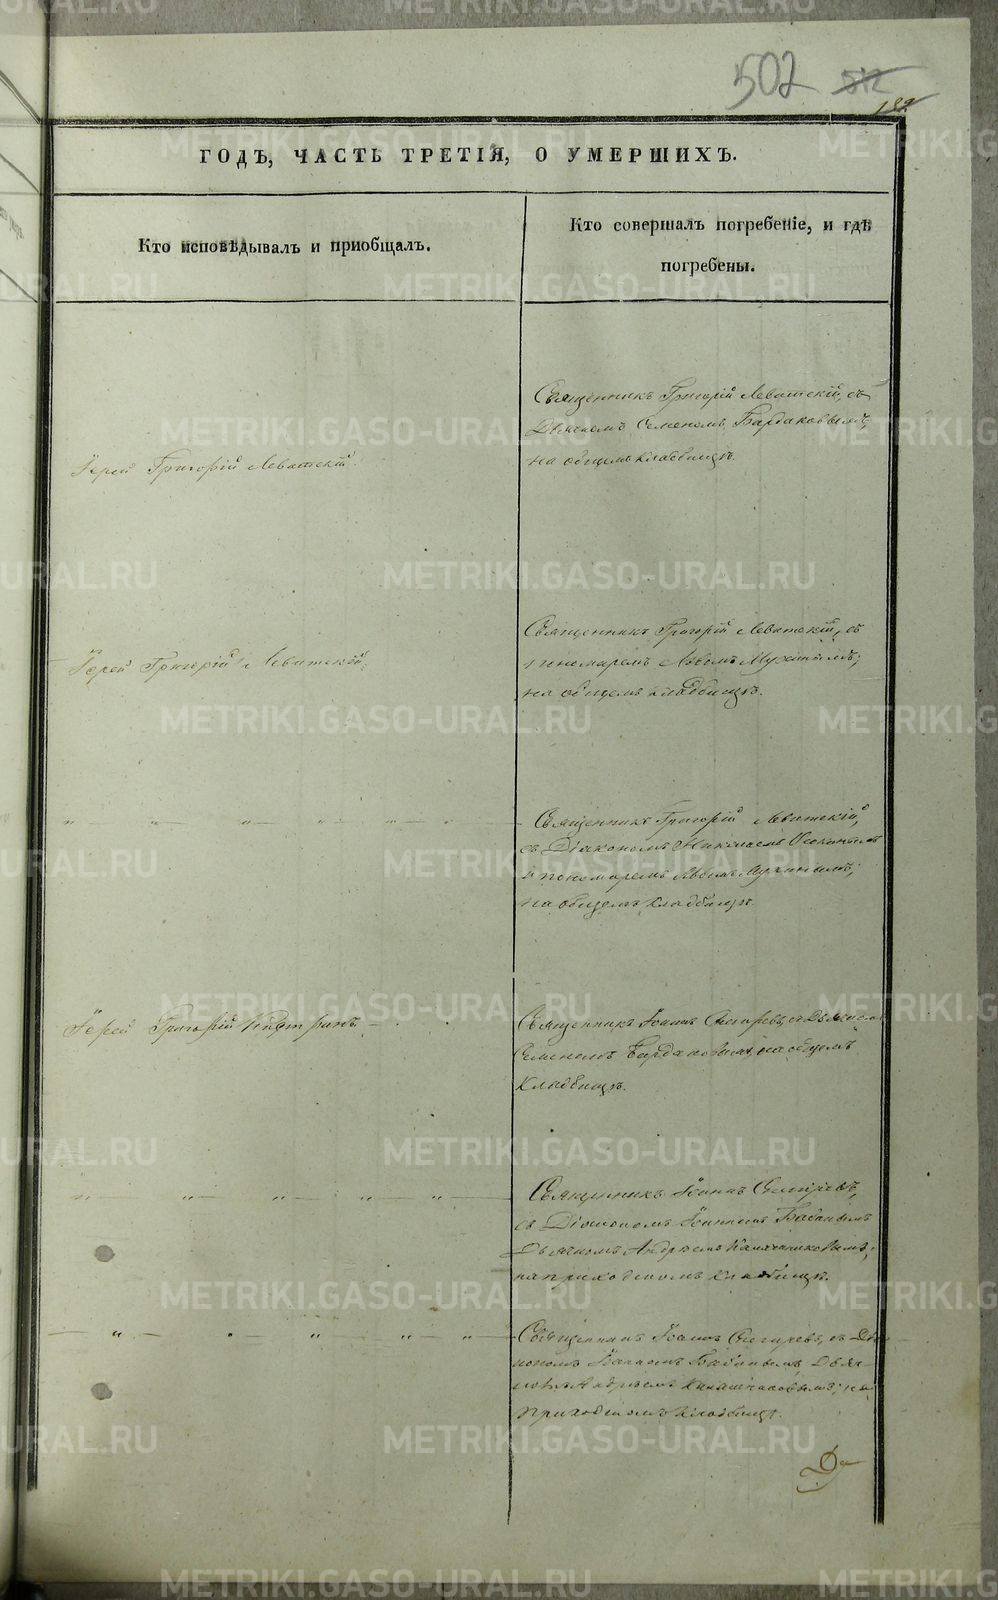 502 512
182
ГОДЪ, ЧАСТЬ ТРЕТІЯ, О УМЕРШИХЪ.
Кто исповѣдывалъ и приобщалъ.
Кто совершалъ погребеніе, и гдѣ
погребены.
Іерей Григорій Левитскій.
Священникъ Григорій Левитскій, съ
Дьячкомъ Семеномъ Бардаковымъ,
на общемъ кладбищѣ.
Іерей Григорій Левитскій;
Священникъ Григорій Левитскій, съ
пономаремъ Львомъ Мухинымъ;
на общемъ кладбищѣ.
" " " " " "
Священникъ Григорій Левитскій,
съ Діакономъ Николаемъ
и пономаремъ Львомъ Мухинымъ;
на общемъ кладбищѣ.
Іерей Григорій
Священникъ Іоаннъ Снегиревъ, съ Дьячкомъ
Семеномъ Бардаковымъ, на общемъ
кладбищѣ.
" " " " "
Священникъ Іоаннъ Снегиревъ,
съ Діакономъ Іоанномъ Бабинымъ
Дьячкомъ Андреемъ
на приходскомъ кладбищѣ.
" " " " "
Священникъ Іоаннъ Снегиревъ, съ Діа-
кономъ Іоанномъ Бабинымъ, Дьяч-
комъ Андреемъ на
приходскомъ кладбищѣ.
METRIKI.GASO-URAL.RU